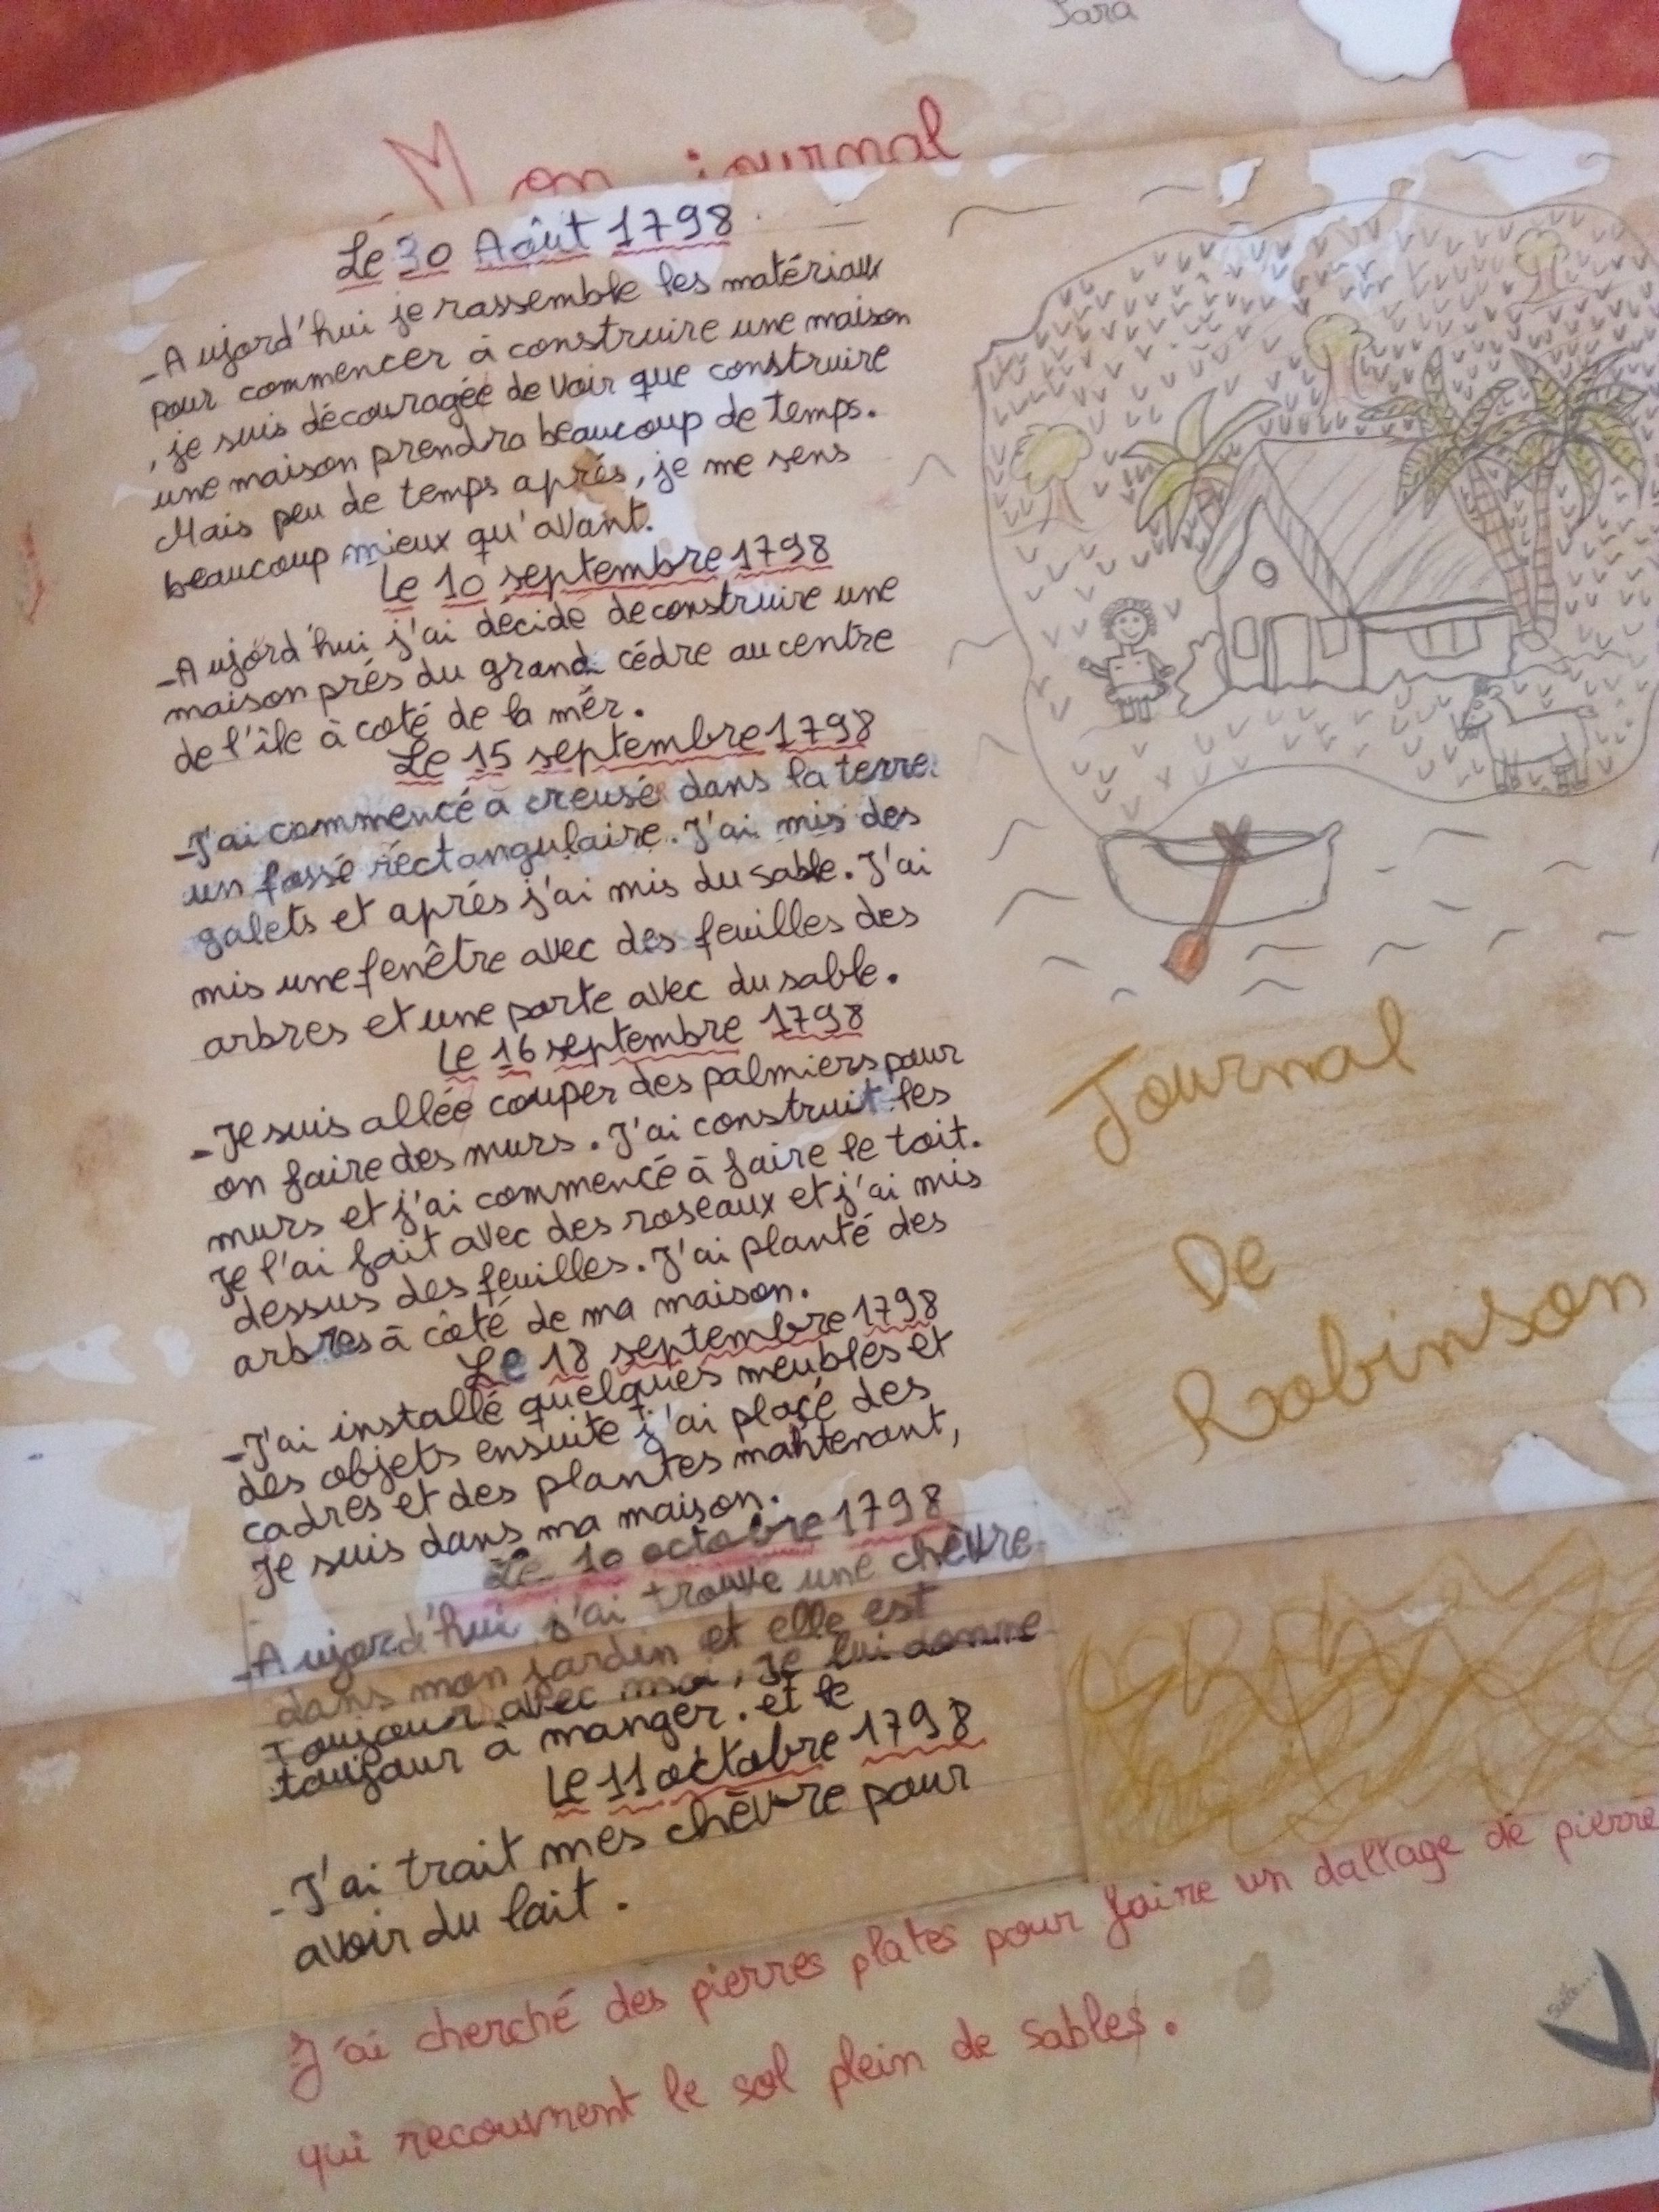 Sara
Mon journal
Le 30 Août 1798
-Aujord'hui je rassemble les matériaux
pour commencer à construire une maison
, je suis découragée de voir que construire
une maison prendra beaucoup de temps.
Mais peu de temps aprés, je me sens
beaucoup mieux qu'avant.
Le 10 septembre 1798
-Aujord'hui j'ai décide de construire une
maison prés du grand cédre au centre
de l'île à coté de la mér.
Le 15 septembre 1798
-J'ai commencé à creusé dans la terre
un fossé réctangulaire. J'ai mis des
galets et aprés j'ai mis du sable. J'ai
mis une fenêtre avec des feuilles des
arbres et une porte avec du sable.
Le 16 septembre 1798
-Je suis allée couper des palmiers pour
on faire des murs. J'ai construit les
murs et j'ai commencé à faire le toit.
Je l'ai fait avec des roseaux et j'ai mis
dessus des feuilles. J'ai planté des
arbres à côté de ma maison.
Le 18 septembre 1798
-J'ai installé quelques meubles et
des objets ensuite j'ai plaçé des
cadres et des plantes maintenant,
Je suis dans ma maison.
Le 10 octobre 1798
-Aujord'hui j'ai trouve une chèvre
dans mon jardin et elle est
toujour avec moi, je lui donne
toujour à manger. et le
Le 11 octobre 1798
-J'ai trait mes chèvre pour
avoir du lait.
Journal
De
Robinson
J'ai cherché des pierres plates pour faire un dallage de pierre
qui recouvrent le sol plein de sables.